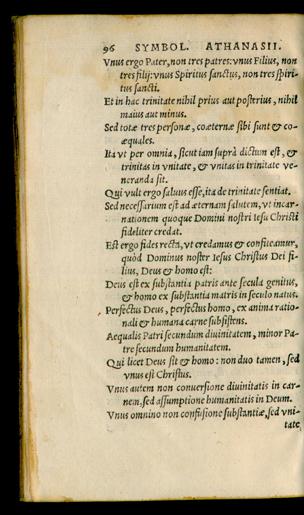 96 SYMBOL. ATHANASII.
Vnus ergo Pater, non tres patres: vnus Filius, non
tres filij: vnus Spiritus sanctus, non tres spiri-
tus sancti.
Et in hac trinitate nihil prius aut posterius, nihil
maius aut minus.
Sed totæ tres personæ, coæternæ sibi sunt & co-
æquales.
Ita vt per omnia, sicut iam suprà dictum est, &
trinitas in vnitate, & vnitas in trinitate ve-
neranda sit.
Qui vult ergo saluus esse, ita de trinitate sentiat.
Sed necessarium est ad æternam salutem, vt incar-
nationem quoque Domini nostri Iesu Christi
fideliter credat.
Est ergo fides recta, vt credamus & confiteamur,
quòd Dominus noster Iesus Christus Dei fi-
lius, Deus & homo est:
Deus est ex substantia patris ante secula genitus,
& homo ex substantia matris in seculo natus.
Perfectus Deus, perfectus homo, ex anima ratio-
nali & humana carne subsistens.
Aequalis Patri secundum diuinitatem, minor Pa-
tre secundum humanitatem.
Qui licet Deus sit & homo: non duo tamen, sed
vnus est Christus.
Vnus autem non conuersione diuinitatis in car-
nem, sed assumptione humanitatis in Deum.
Vnus omnino non confusione substantiæ, sed vni-
tate